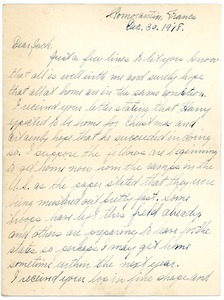 Romorantin, France
Dec. 30. 1918.
Dear Jack:
Just a few lines to let you know
that all is well with me and surely hope
that all at home are in the same condition.
I received your letter stating that Harry
expected to be home for Christmas and
certainly hope that he succeeded in doing
so. I suppose the fellows are beginning
to get home now from the camps in the
U.S. as the paper stated that they were
being mustered out pretty fast. Some
troops have left this field already
and others are preparing to leave for the
states so perhaps I may get home
sometime within the next year.
I received your box in fine shape and